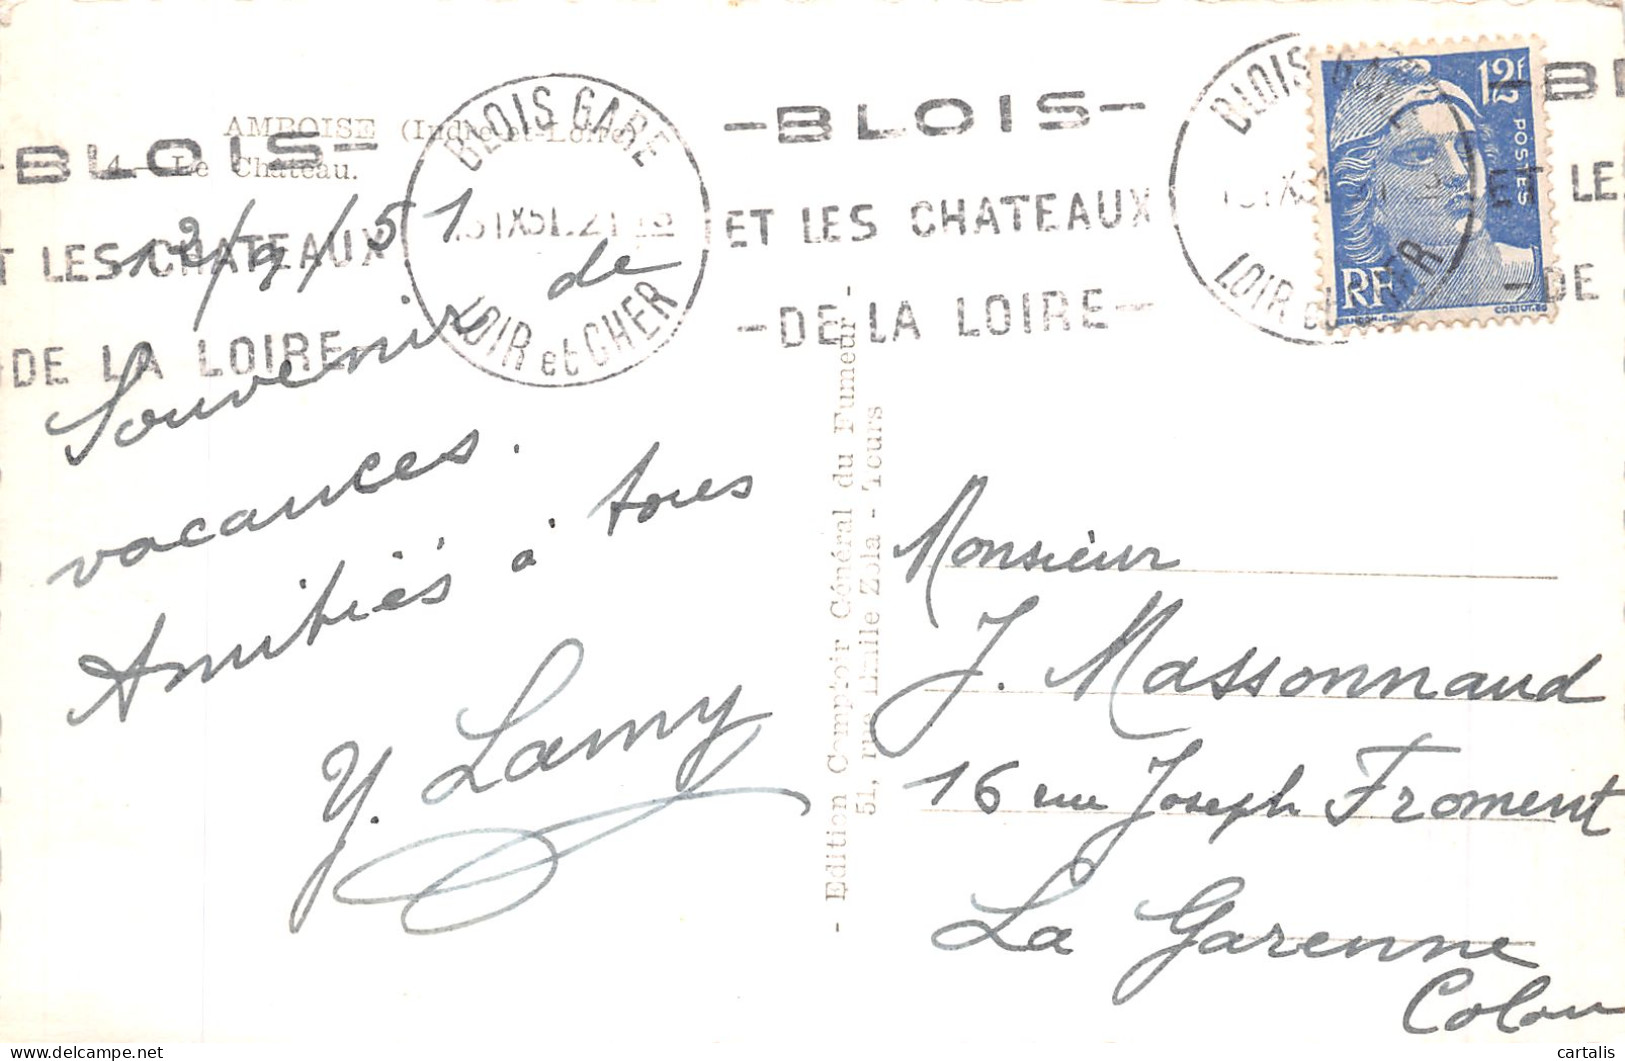 AMBOISE (Indre-et-Loire)
4 - Le Château.
BLOIS
ET LES CHATEAUX
DE LA LOIRE
BLOIS GARE
LOIR et CHER
- BLOIS -
ET LES CHATEAUX
- DE LA LOIRE -
BLOIS GARE
LOIR et CHER
12f
POSTES
RF
- BL
ET LES
- DE
12/9/51
Souvenir de
vacances.
Amitiés à tous
Y. Lamy
- Edition Comptoir Général du Fumeur -
51, rue Emile Zola - Tours
Monsieur
J. Massonnaud
16 rue Joseph Froment
La Garenne
Colom
cartalis
delcampe.net